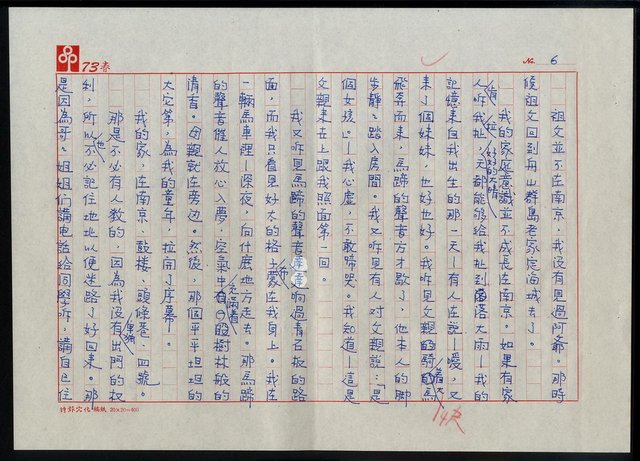 73春
No. 6
祖父並不在南京,我沒有見過阿爺。那時
候祖父回到舟山群島老家定海城去了。
我的家庭意識並不成長在南京。如果有家
人咋我扯,天都能夠給我扯到落大雨—我的
記憶來自我出生的那一天—有人在說—噯,又
來了個妹妹,也好也好。我咋見父親的騎著大馬
飛奔而來,馬蹄的聲音方才歇了,他本人的腳
步靜靜踏入房間。我又咋見有人對父親說:「是
個女孩。」—我心虛,不敢啼哭。我知道—這是
父親來去上跟我照面第一回。
我又咋見馬蹄的聲音達達響過青石板的路
面,而我只看見好大的格子布蒙在我身上。我在
一輛馬車裡—深夜,向什麼地方走去。那馬蹄
的聲音催人放心入夢,空氣中充滿着樹林般的
清香。母親就在旁边。然後,那個平平坦坦的
大宅第,為我的童年,拉開了序幕。
我的家,在南京、鼓樓、頭條巷、四號。
那是不必有人教的,因為我沒有出門的权
利,所以也不必記住地址以便迷路了好回來。那
是因為哥哥姐姐們講電話給同學咋,講自己住
特郝文化稿紙 20×20=400